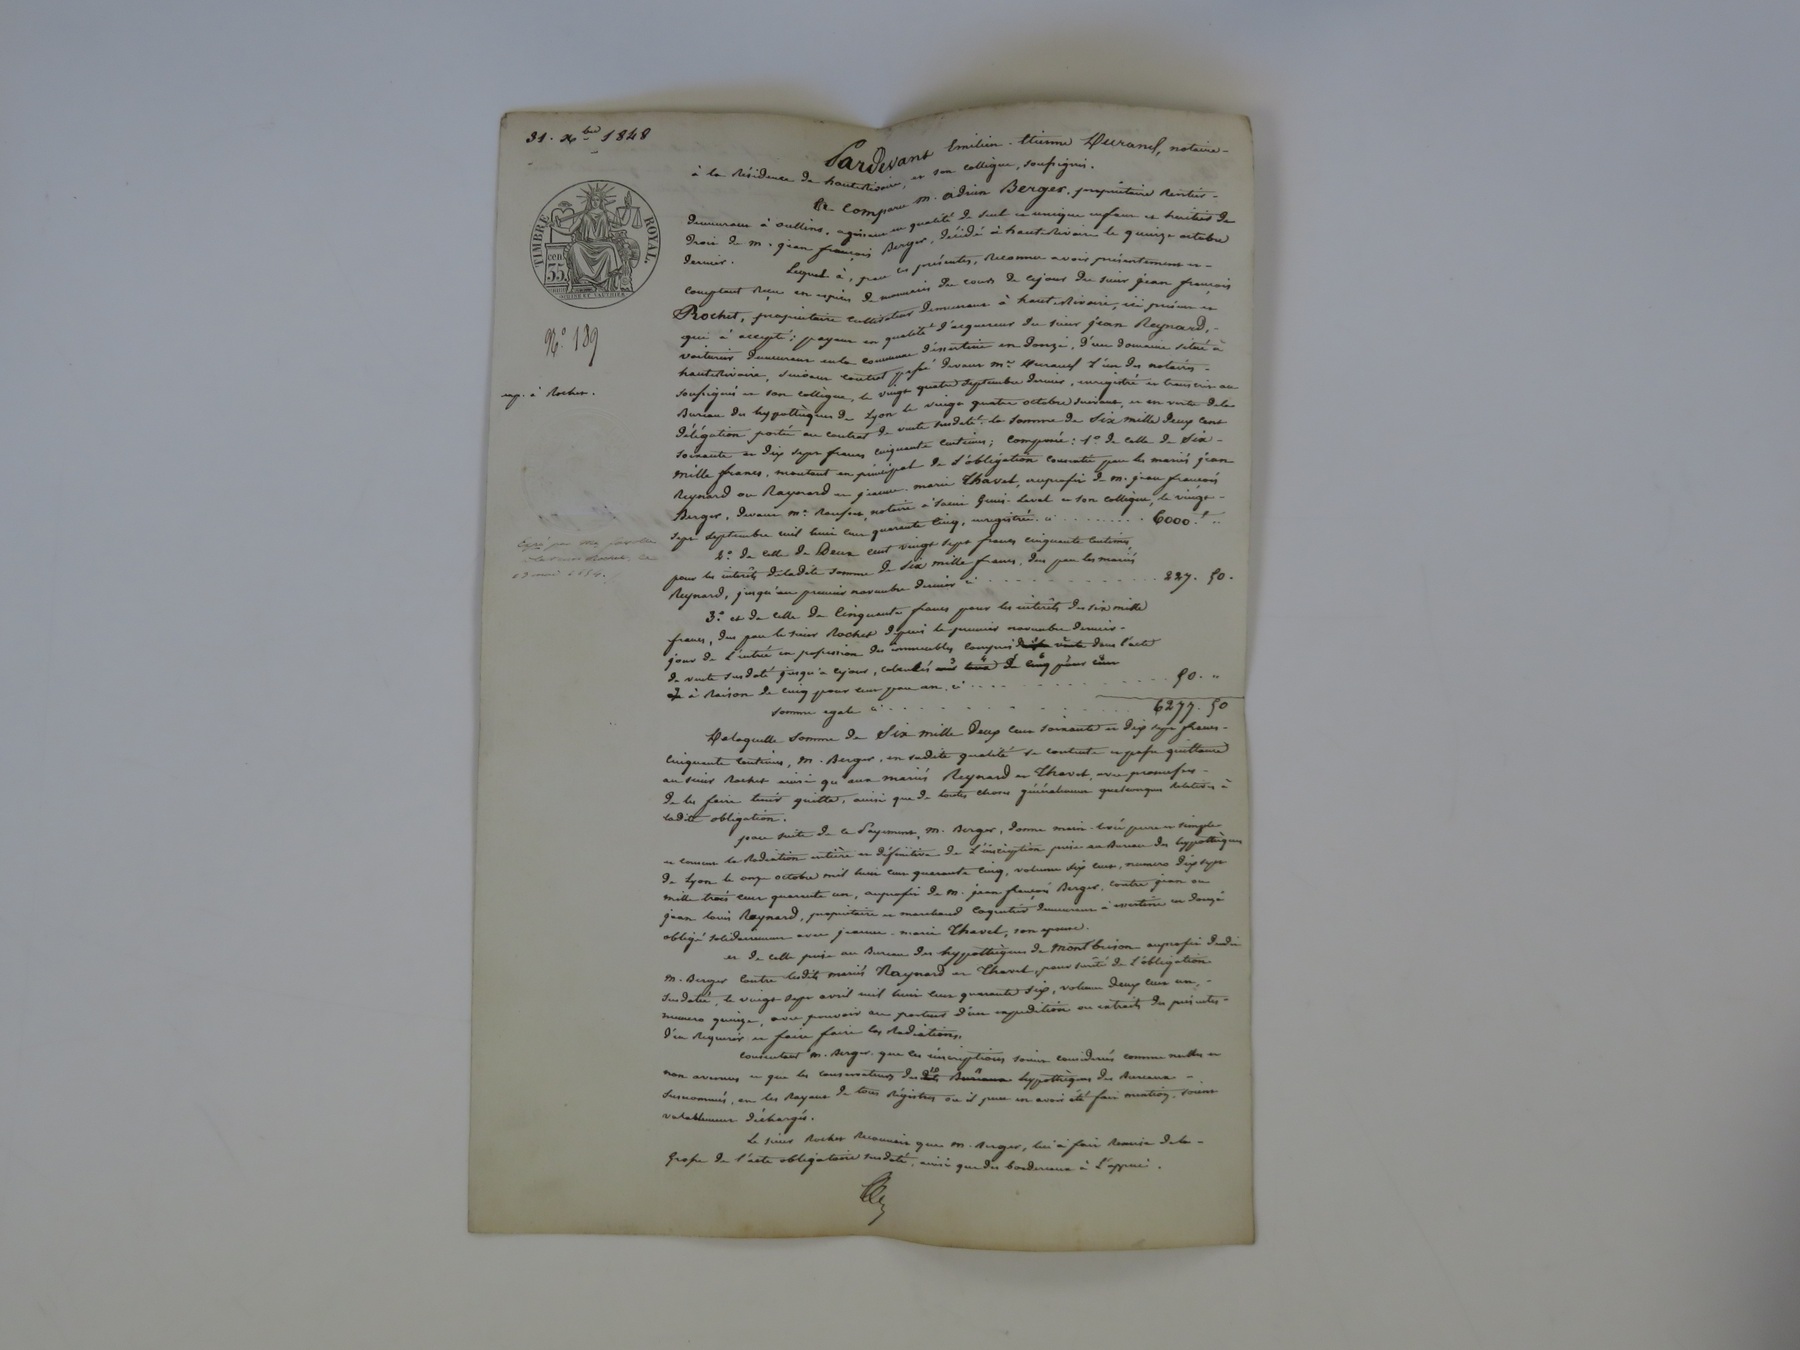 31. Xbre 1848
TIMBRE ROYAL.
cen
35
No 189
exp. à Rochet.
Pardevant Emilien-Etienne Durand, notaire-
à la Résidence de hauteRivoire, et son collègue, soussignés.
Comparu M. adrien Berger, propriétaire Rentier-
demeurant à oullins, agissant en qualité de seul et unique enfant et héritier de
droit de M. jean françois Berger, décédé à hauteRivoire le quinze octobre
dernier.
Lequel à, par ces présentes, Reconnu avoir présentement et-
comptant Reçu en espèces de monnaies du cours de cejour du sieur jean françois
Rochet, propriétaire cultivateur demeurant à hauteRivoire, ici présent et
qui à accepté: payant en qualité d'acquereur du sieur jean Reynard,-
voiturier demeurant en la commune d'essertine en donzi, d'un domaine situé à
hauteRivoire, suivant contrat passé devant Me Durand l'un des notaires-
soussignés et son collègue, le vingt quatre septembre dernier, enregistré et transcrit au
Bureau des hypothèques de Lyon le vingt quatre octobre suivant, et en vertu dela
délégation portée au contrat de vente susdaté: la somme de Six mille deux cent
soixante et dix sept francs cinquante centimes; composée: 1o de celle de Six-
mille francs, montant en principal de l'obligation consentie par les mariés jean
Reynard ou Raynard et jeanne-marie Thavet, auprofit de M. jean françois
Berger, devant Me notaire à saint Genis-Laval et son collègue, le vingt-
sept septembre mil huit cent quarante cinq, enregistrée. ci ........ 6000.f ..
2o de celle de Deux cent vingt sept francs cinquante centimes
pour les intérêts deladite somme de six mille francs, dus par les mariés
Reynard, jusqu'au premier novembre dernier ci ........ 227. 50.
3o et de celle de Cinquante francs pour les intérêts des six mille
francs, dus par le sieur Rochet depuis le premier novembre dernier-
jour de l'entrée en possession des immeubles compris dans l'acte
de vente susdaté jusqu'à cejour, calculés
à Raison de cinq pour cent par an. ci ........ 50. "
somme egale ci ........ 6277. 50
Delaquelle somme de Six mille deux cent soixante et dix sept francs-
cinquante centimes, M. Berger, en sadite qualité se contente et passe quittance
au sieur Rochet ainsi qu'aux mariés Reynard et Thavet, avec promesse-
de les faire tenir quitte, ainsi que de toutes choses généralement quelconques Relatives à
ladite obligation.
par suite de ce payement, M. Berger, donne main-levée pure et simple
et consent la Radiation entière et définitive de l'inscription prise au Bureau des hypothèques
de Lyon le onze octobre mil huit cent quarante cinq, volume six cent, numero dix sept
mille trois cent quarante un, auprofit de M. jean françois Berger, contre jean ou
jean louis Raynard, propriétaire et marchand coquetier demeurant à essertine en donzi
obligé solidairement avec jeanne-marie Thavet, son epouse.
et de celle prise au Bureau des hypothèques de Montbrison auprofit dudit
M. Berger contre lesdits mariés Raynard et Thavet, pour sureté de l'obligation
susdatée, le vingt sept avril mil huit cent quarante six, volume deux cent un,-
numero quinze, avec pouvoir au porteur d'une expedition ou extrait des présentes-
d'en Requerir et faire faire les Radiations.
consentant M. Berger que ces inscriptions soient considerées comme nulles et
non avenues et que les conservateurs des hypothèques des Bureaux-
susnommés, en les Rayant de tous Régistres où il peut en avoir été fait mention, soient
valablement déchargés.
Le sieur Rochet Reconnait que M. Berger, lui à fait Remise dela-
Grosse de l'acte obligatoire susdaté, ainsi que des bordereaux à l'appui.